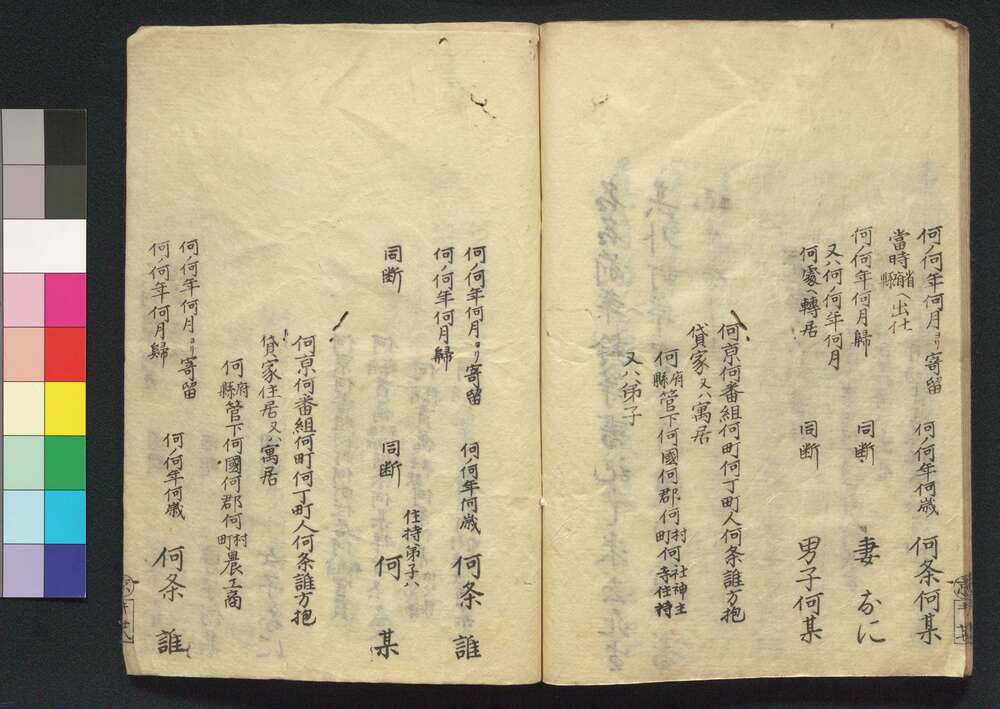 何ノ何年何月ヨリ寄留　何ノ何年何歳　何条何某
當時省府縣ヘ出仕
何ノ何年何月歸　同断　妻　なに
又ハ何ノ何年何月
何處ヘ轉居　同断　男子何某
何京何番組何町何丁町人何条誰方抱
貸家又ハ寓居
何府縣管下何國何郡何村町何社神主寺住持
又ハ弟子
何ノ何年何月ヨリ寄留　何ノ何年何歳　何条　誰
何ノ何年何月歸
住持弟子ハ
同断　同断　何　某
何京何番組何町何丁町人何条誰方抱
貸家住居又ハ寓居
何府縣管下何國何郡何村町農工商
何ノ何年何月ヨリ寄留　何ノ何年何歳　何条　誰
何ノ何年何月歸